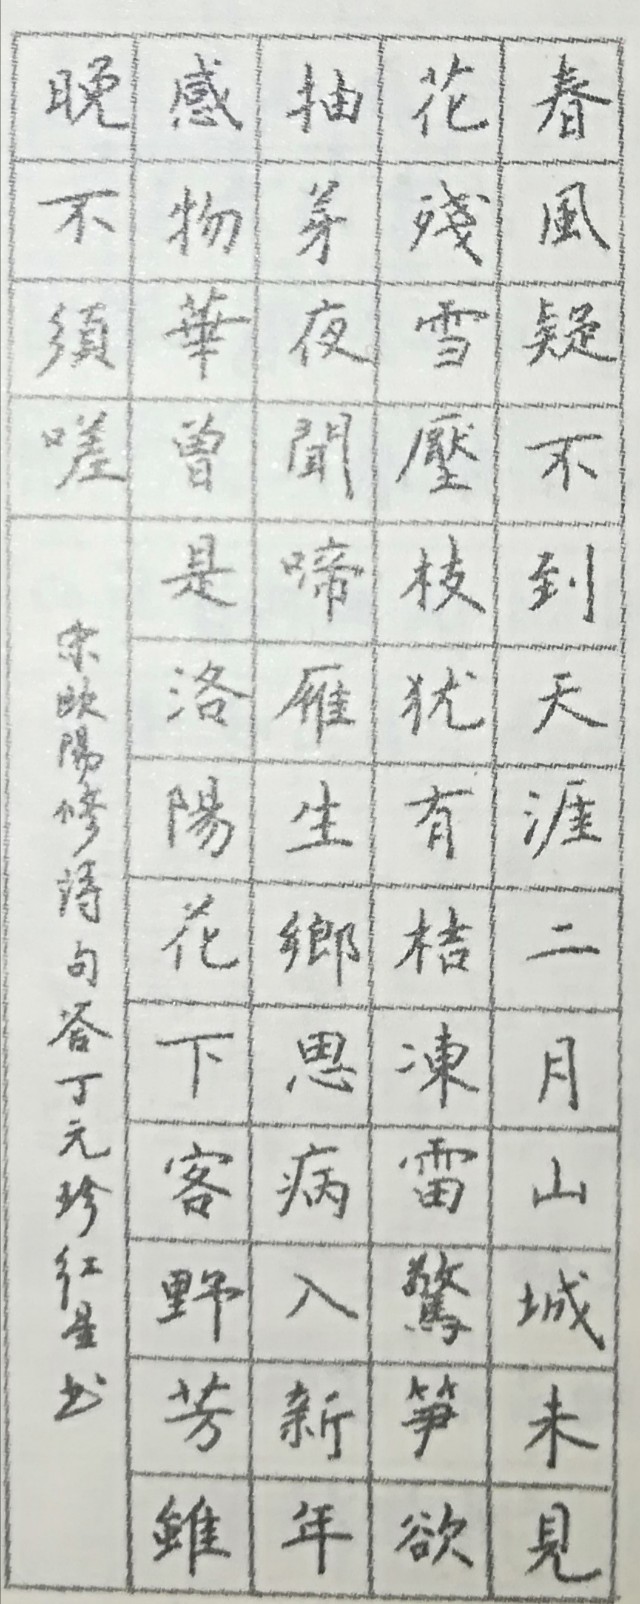 春風疑不到天涯二月山城未見
花殘雪壓枝猶有桔凍雷驚筍欲
抽芽夜聞啼雁生鄉思病入新年
感物華曾是洛陽花下客野芳雖
晚不須嗟
宋欧陽修詩句答丁元珍红星书